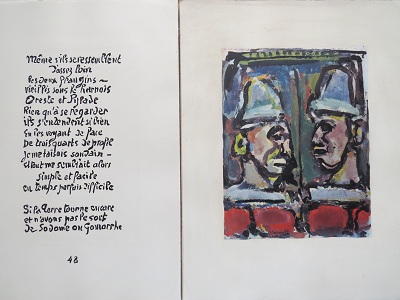 Même s'ils se ressemblent
d'assez loin
Les deux
vieillis sous le harnois
Oreste et Pilade
Rien qu'à se regarder
ils s'entendent si bien
En les voyant de face
De trois quarts de profil
Je me taisais soudain –
tout me semblait alors
simple et facile
au temps parfois difficile
Si la Terre tourne encore
et n'avons pas le sort
de Sodome ou Gomorrhe
48